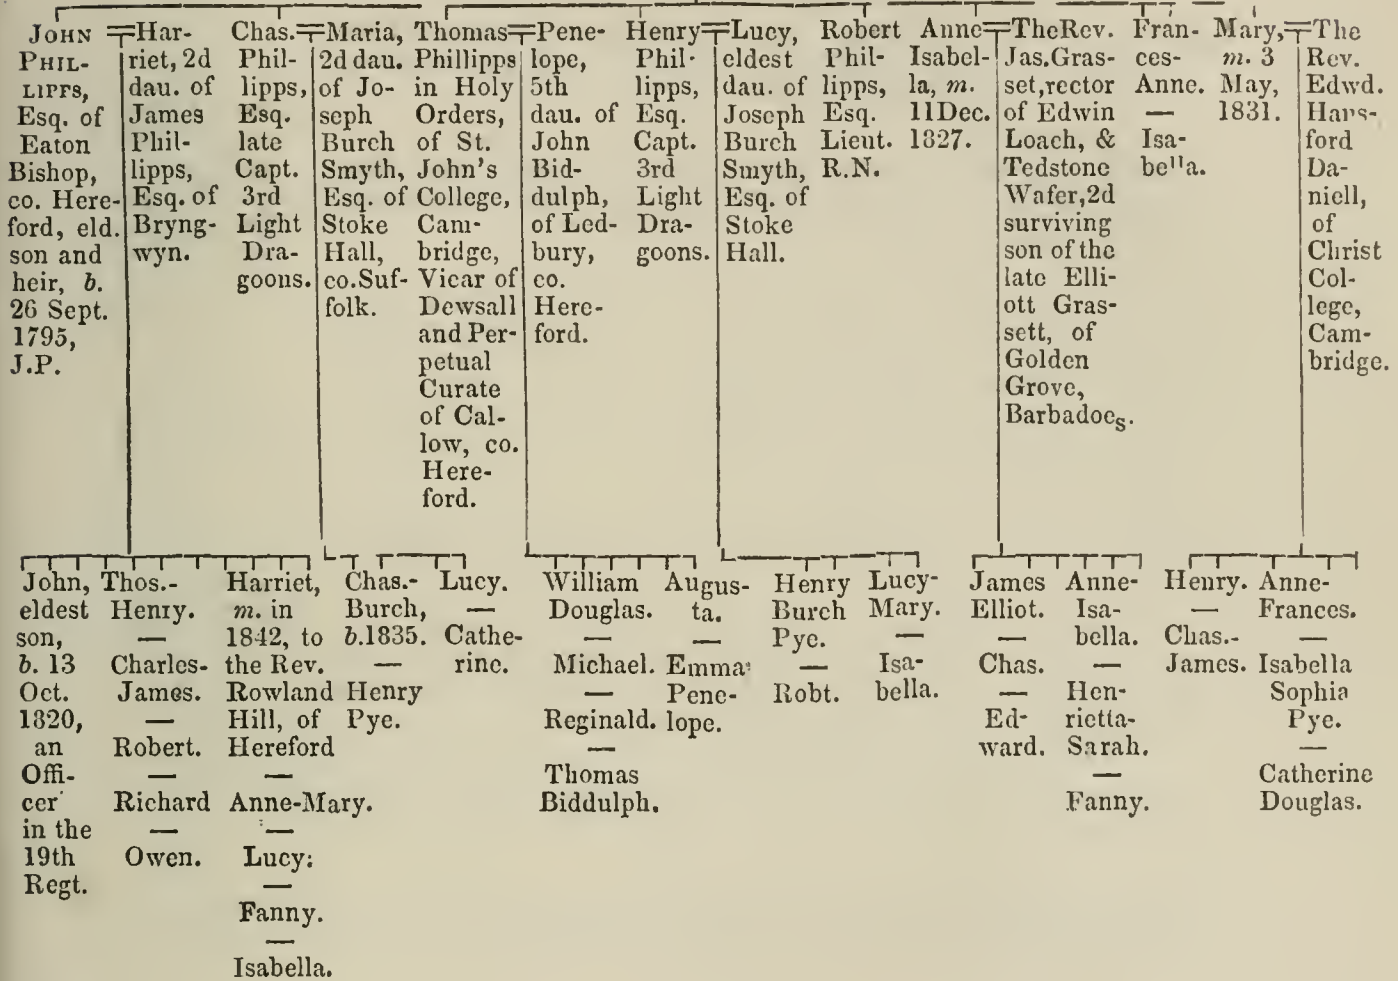 JOHN
PHIL-
LIPPS,
Esq. of
Eaton
Bishop,
co. Here-
ford, eld.
son and
heir, b.
26 Sept.
1795,
J.P.
Har-
riet, 2d
dau. of
James
Phil-
lipps,
Esq. of
Bryng-
wyn.
Chas.
Phil-
lipps,
Esq.
late
Capt.
3rd
Light
Dra-
goons.
Maria,
2d dau.
of Jo-
seph
Burch
Smyth,
Esq. of
Stoke
Hall,
co.Suf-
folk.
Thomas
Phillipps
in Holy
Orders,
of St.
John's
College,
Cam-
bridge,
Vicar of
Dewsall
and Per-
petual
Curate
of Cal-
low, co.
Here-
ford.
Pene-
lope,
5th
dau. of
John
Bid-
dulph,
of Led-
bury,
co.
Here-
ford.
Henry
Phil-
lipps,
Esq.
Capt.
3rd
Light
Dra-
goons.
Lucy,
eldest
dau. of
Joseph
Burch
Smyth,
Esq. of
Stoke
Hall.
Robert
Phil-
lipps,
Esq.
Lieut.
R.N.
Anne
Isabel-
la, m.
11Dec.
1827.
TheRev.
Jas.Gras-
set,rector
of Edwin
Loach, &
Tedstone
Wafer,2d
surviving
son of the
late Elli-
ott Gras-
sett, of
Golden
Grove,
Barbadoes.
Fran-
ces-
Anne.
—
Isa-
bella.
Mary,
m. 3
May,
1831.
The
Rev.
Edwd.
Hans-
ford
Da-
niell,
of
Christ
Col-
lege,
Cam-
bridge.
John,
eldest
son,
b. 13
Oct.
1820,
an
Offi-
cer
in the
19th
Regt.
Thos.-
Henry.
—
Charles-
James.
—
Robert.
—
Richard
—
Owen.
Harriet,
m. in
1842, to
the Rev.
Rowland
Hill, of
Hereford
—
Anne-Mary.
—
Lucy:
—
Fanny.
—
Isabella.
Chas.-
Burch,
b.1835.
—
Henry
Pye.
Lucy.
—
Cathe-
rine.
William
Douglas.
—
Michael.
—
Reginald.
—
Thomas
Biddulph.
Augus-
ta.
—
Emma
Pene-
lope.
Henry
Burch
Pye.
—
Robt.
Lucy-
Mary.
—
Isa-
bella.
James
Elliot.
—
Chas.
—
Ed-
ward.
Anne-
Isa-
bella.
—
Hen-
rietta-
Sarah.
—
Fanny.
Henry.
—
Chas.-
James.
Anne-
Frances.
—
Isabella
Sophia
Pye.
—
Catherine
Douglas.